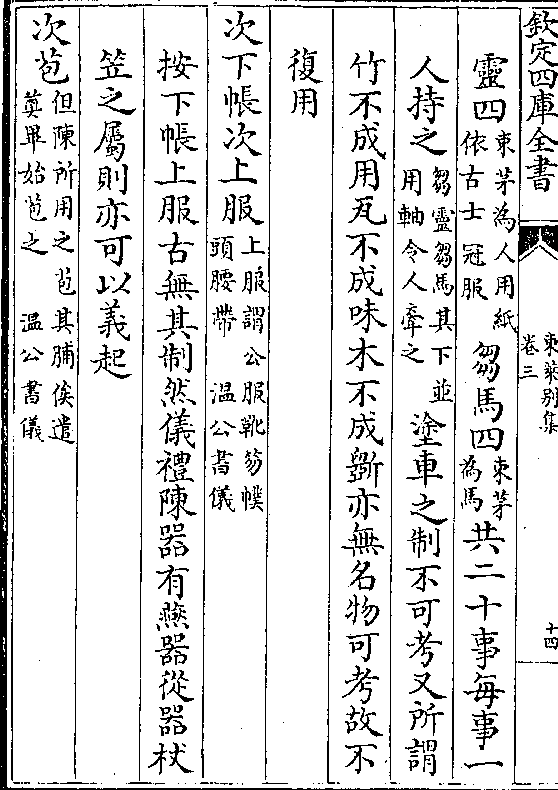 欽定四庫全書
東萊別集
卷三
十四
靈四束茅為人用紙依古士冠服芻馬四束茅為馬共二十事每事一
人持之芻靈芻馬其下並用軸令人牽之塗車之制不可考又所謂
竹不成用瓦不成味木不成斵亦無名物可考故不
復用
次下帳次上服上服謂公服靴笏幞頭腰帶 溫公書儀
按下帳上服古無其制然儀禮陳器有燕器從器杖
笠之屬則亦可以義起
次苞但陳所用之苞其脯俟遣奠畢始苞之 溫公書儀